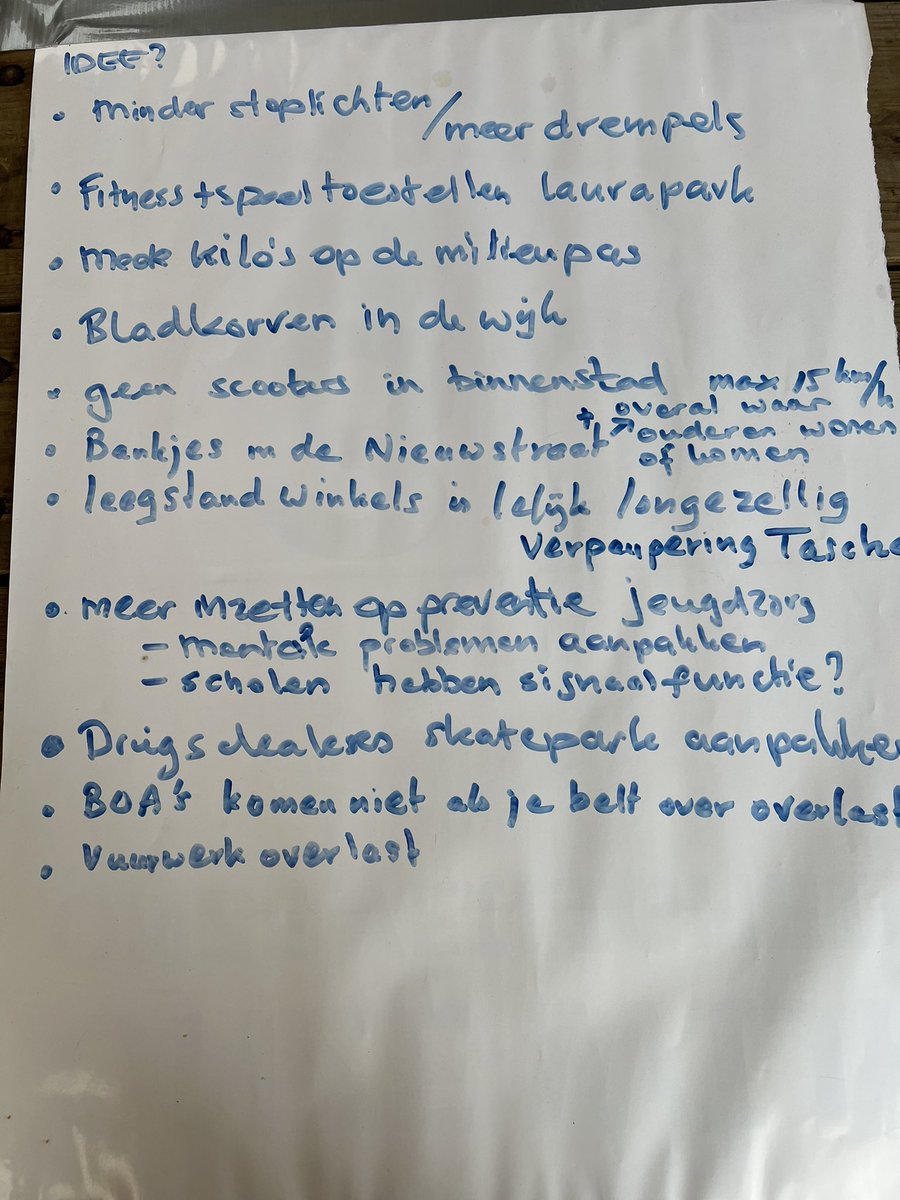 IDEE?
• minder stoplichten / meer drempels
• Fitness + speeltoestellen laurapark
• meer kilo's op de milieupas
• Bladkorven in de wijk
• geen scooters in binnenstad max 15 km/h
• Bankjes in de Nieuwstraat + ↗ overal waar
ouderen wonen
of komen
• leegstand winkels is lelijk / ongezellig
Verpaupering Tasche
• meer inzetten op preventie jeugdzorg
- mentale problemen aanpakken
- scholen hebben signaalfunctie?
• Drugsdealers skatepark aanpakken
• BOA's komen niet als je belt over overlast
• Vuurwerk overlast